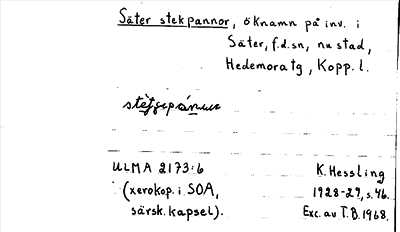 Säter stekpannor, öknamn på inv. i
Säter, f.d.sn, nu stad,
Hedemoratg, Kopp. l.
ULMA 2173:6
(xerokop. i SOA,
särsk. kapsel).
K. Hessling
1928-29, s. 46.
Exc. av T.B. 1968.